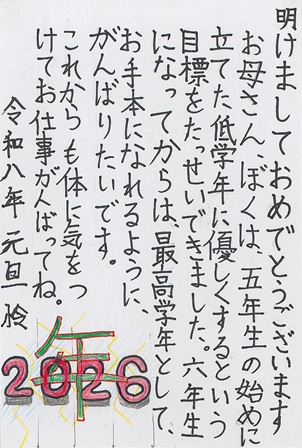 明けましておめでとうございます
お母さん、ぼくは、五年生の始めに
立てた低学年に優しくするという
目標をたっせいできました。六年生
になってからは、最高学年として、
お手本になれるように、
がんばりたいです。
これからも体に気をつ
けてお仕事がんばってね。
令和八年 元旦 怜
2026
年